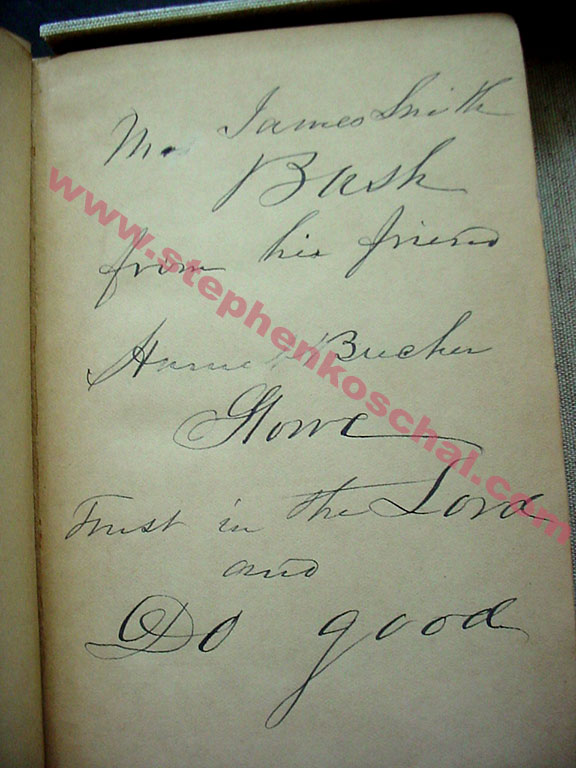 Mr James Smith
Bush
from his friend
Harriet Beecher
Stowe
Trust in the Lord
and
Do good
www.stephenkoschal.com